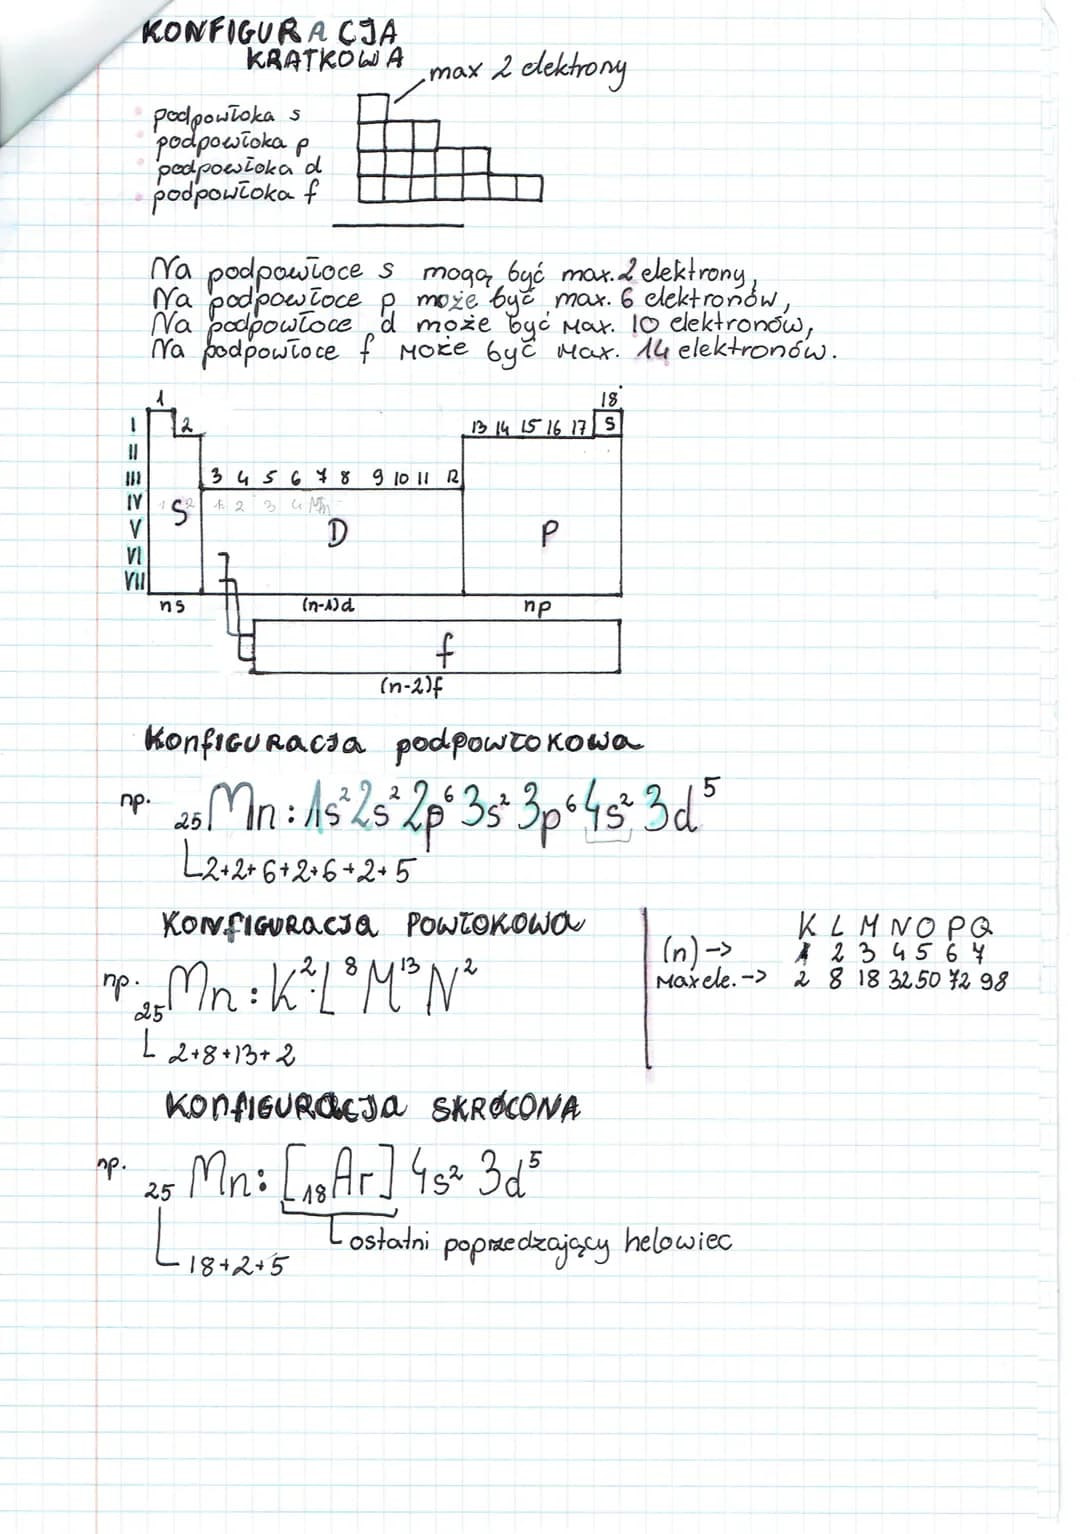 KONFIGURACJA
KRATKOWA
max 2 elektrony
podpowłoka s
podpowłoka p
podpowłoka d
podpowłoka f
Na podpowłoce s mogą być max. 2 elektrony,
Na podpowłoce p może być max. 6 elektronów,
Na podpowłoce d może być max. 10 elektronów,
Na podpowłoce f może być max. 14 elektronów.
1 18
I 2 13 14 15 16 17 S
II
III 3 4 5 6 7 8 9 10 11 12
IV 1 2 1 2 3 4 Mn
S
V D P
VI
VII
ns (n-1)d np
f
(n-2)f
Konfiguracja podpowłokowa
np. 25Mn: 1s² 2s² 2p⁶ 3s² 3p⁶ 4s² 3d⁵
2+2+6+2+6+2+5
Konfiguracja powłokowa
K L M N O P Q
(n) -> 1 2 3 4 5 6 7
Max ele. -> 2 8 18 32 50 72 98
np. 25Mn: K² L⁸ M¹³ N²
2+8+13+2
Konfiguracja SKRÓCONA
np. 25Mn: [18Ar] 4s² 3d⁵
ostatni poprzedzający helowiec
18+2+5